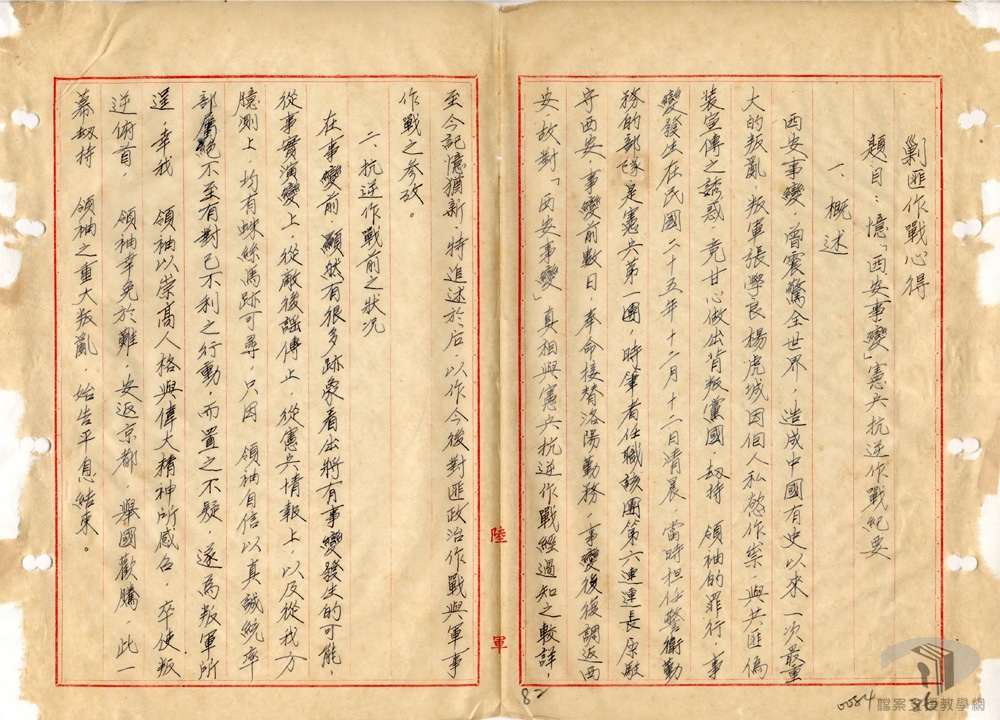 剿匪作戰心得
題目：憶「西安事變」憲兵抗逆作戰紀要
一、概述
西安事變，曾震驚全世界，造成中國有史以來一次最重
大的叛亂，叛軍張學良楊虎城因個人私慾作祟，與共匪偽
裝宣傳之誘惑，竟甘心做出背叛黨國，劫持　領袖的罪行，事
變發生在民國二十五年十二月十二日清晨，當時担任警衛勤
務的部隊是憲兵第一團，時筆者任職該團第六連連長原駐
守西安，事變前數日，奉命接替洛陽勤務，事變後復調返西
安，故對「西安事變」真相與憲兵抗逆作戰經過知之較詳，
至今記憶猶新，特進述於后，以作今後對匪政治作戰與軍事
作戰之參攷。
二、抗逆作戰前之狀況
在事變前，顯然有很多跡象看出將有事變發生的可能，
從事實演變上，從敵後謠傳上，從憲兵情報上，以及從我方
臆測上，均有蛛絲馬跡可尋，只因　領袖自信以真誠統率
部屬絕不至有對己不利之行動，而置之不疑，遂為叛軍所
逞，幸我　領袖以崇高人格與偉大精神所感召，卒使叛
逆俯首，　領袖幸免於難，安返京都，舉國歡騰，此一
幕劫持　領袖之重大叛亂，始告平息結束。
陸軍
82
0084
檔案支援教學網